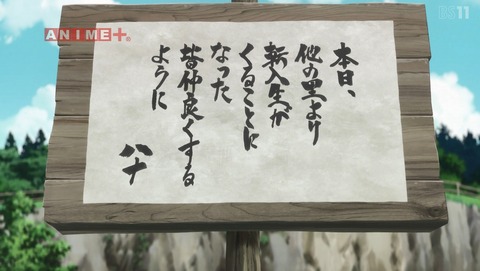 ANIME+
BS11
本日、
他の里より
新入生が
くることに
なった
皆仲良くする
ように
八十